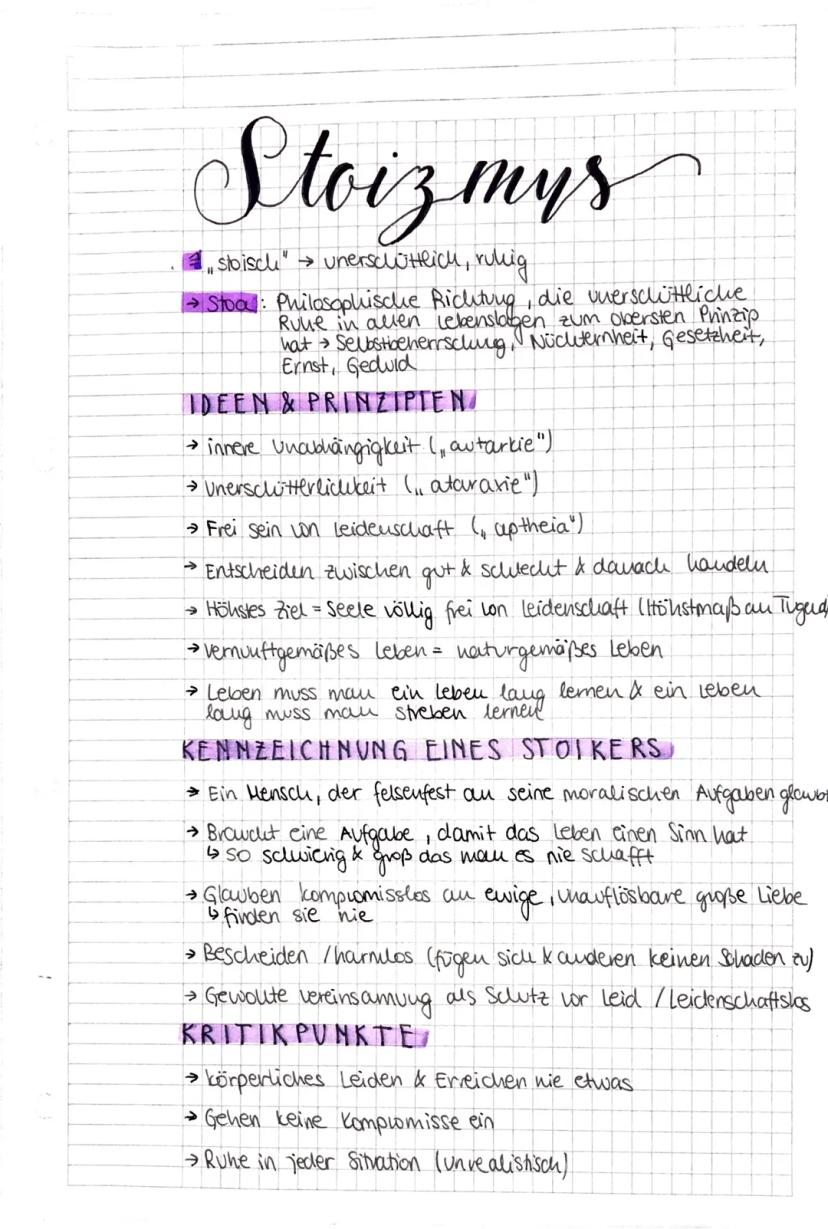 Stoizmus
„stoisch" → unerschütterlich, ruhig
→ Stoa: Philosophische Richtung, die unerschüttliche
Ruhe in allen Lebenslagen zum obersten Prinzip
hat → Selbstbeherrschung, Nüchternheit, Gesetzheit,
Ernst, Geduld
IDEEN & PRINZIPIEN
→ innere Unabhängigkeit („autarkie")
→ Unerschütterlichkeit („ataraxie")
→ Frei sein von Leidenschaft („aptheia")
→ Entscheiden zwischen gut & schlecht & danach handeln
→ Höhstes Ziel = Seele völlig frei von Leidenschaft (Höhstmaß an Tugend
→ Vernunftgemäßes Leben = naturgemäßes Leben
→ Leben muss man ein Leben lang lernen & ein Leben
lang muss man streben lernen
KENNZEICHNUNG EINES STOIKERS
→ Ein Mensch, der felsenfest an seine moralischen Aufgaben glaubt
→ Braucht eine Aufgabe, damit das Leben einen Sinn hat
↳ so schwierig & groß das man es nie schafft
→ Glauben kompromisslos an ewige, unauflösbare große Liebe
↳ finden sie nie
→ Bescheiden / harmlos (fügen sich & anderen keinen Schaden zu)
→ Gewollte Vereinsamung als Schutz vor Leid / Leidenschaftslos
KRITIKPUNKTE
→ körperliches Leiden & Erreichen nie etwas
→ Gehen keine Kompromisse ein
→ Ruhe in jeder Situation (unrealistisch)